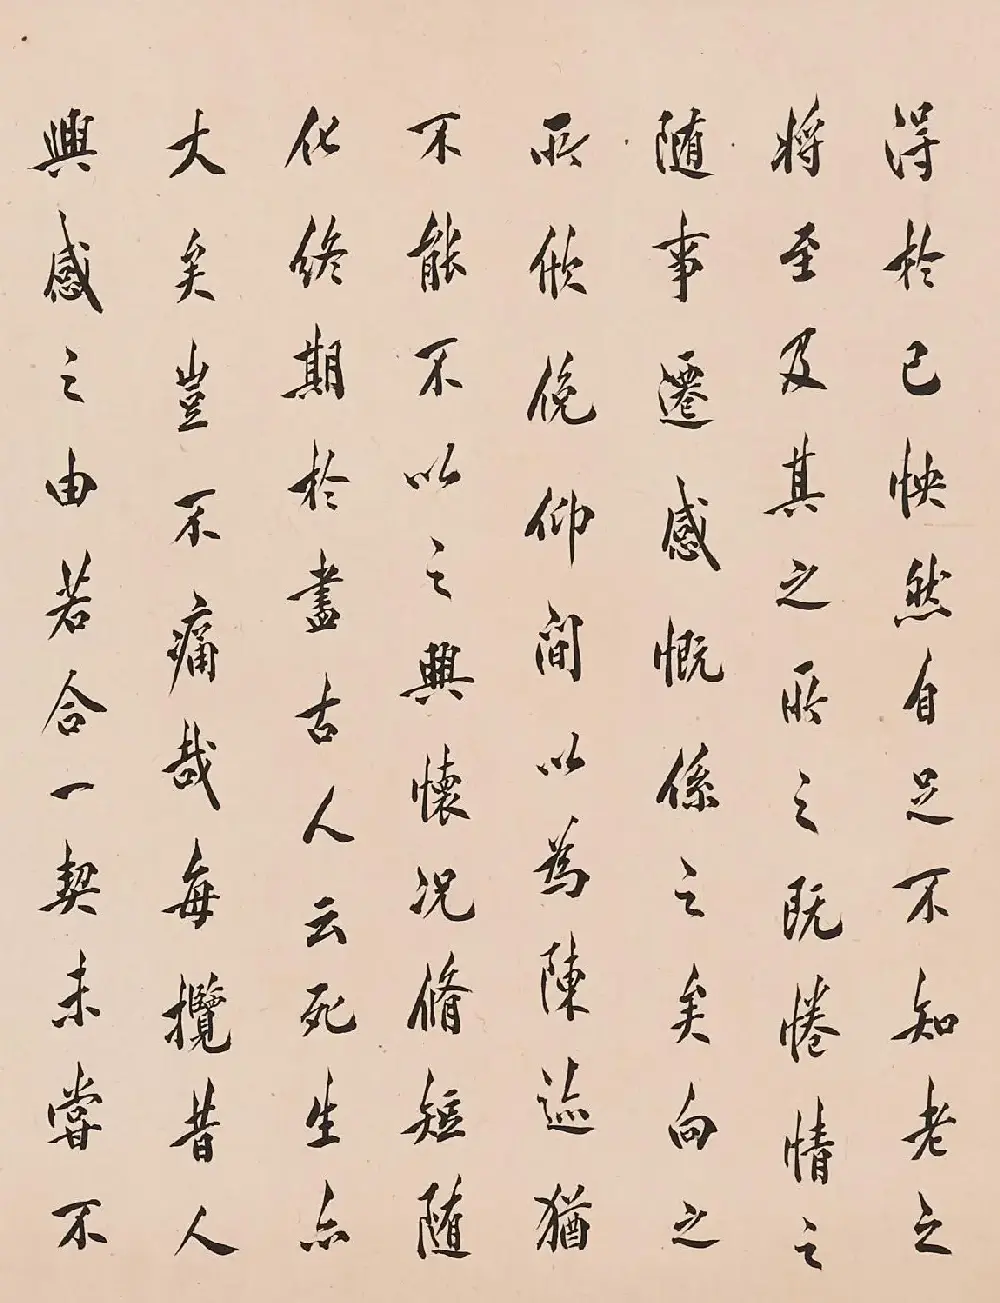 得於己怏然自足不知老之
將至及其之所之既惓情之
隨事遷感慨係之矣向之
所欣俛仰間以為陳迹猶
不能不以之興懷況脩短隨
化終期於盡古人云死生亦
大矣豈不痛哉每攬昔人
興感之由若合一契未嘗不